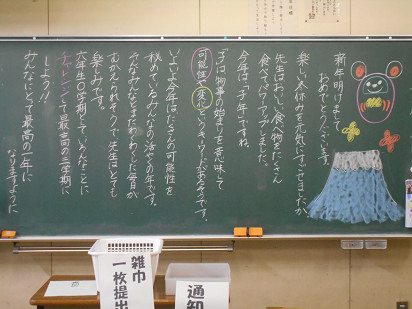 新年明けまして
おめでとうございます。
楽しい冬休みを元気にすごせましたか
先生はおいしい食べ物をたくさん
食べてパワーアップしました。
今年は「子年」ですね。
「子」は物事の始まりを意味して
可能性や変化というキーワードがあるそうです。
いよいよ今年はたくさんの可能性を
秘めているみんなの活やくの年です。
そんなみんなとまたわくわくした毎日が
むかえられそうで先生はとても
楽しみです。
六年生の〇学期としていろんなことに
チャレンジして最高の三学期に
しよう!!
みんなにとって最高の一年に
なりますように
雑巾
一枚提出
通知